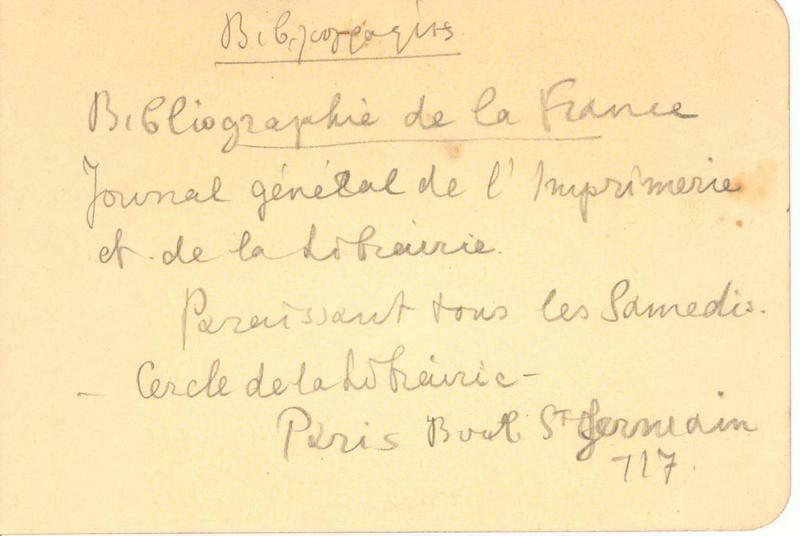 Bibliographie de la France
Journal général de l'Imprimerie
et de la Librairie.
Paraissant tous les Samedis.
- Cercle de la Librairie -
Paris Boul St Germain
117.